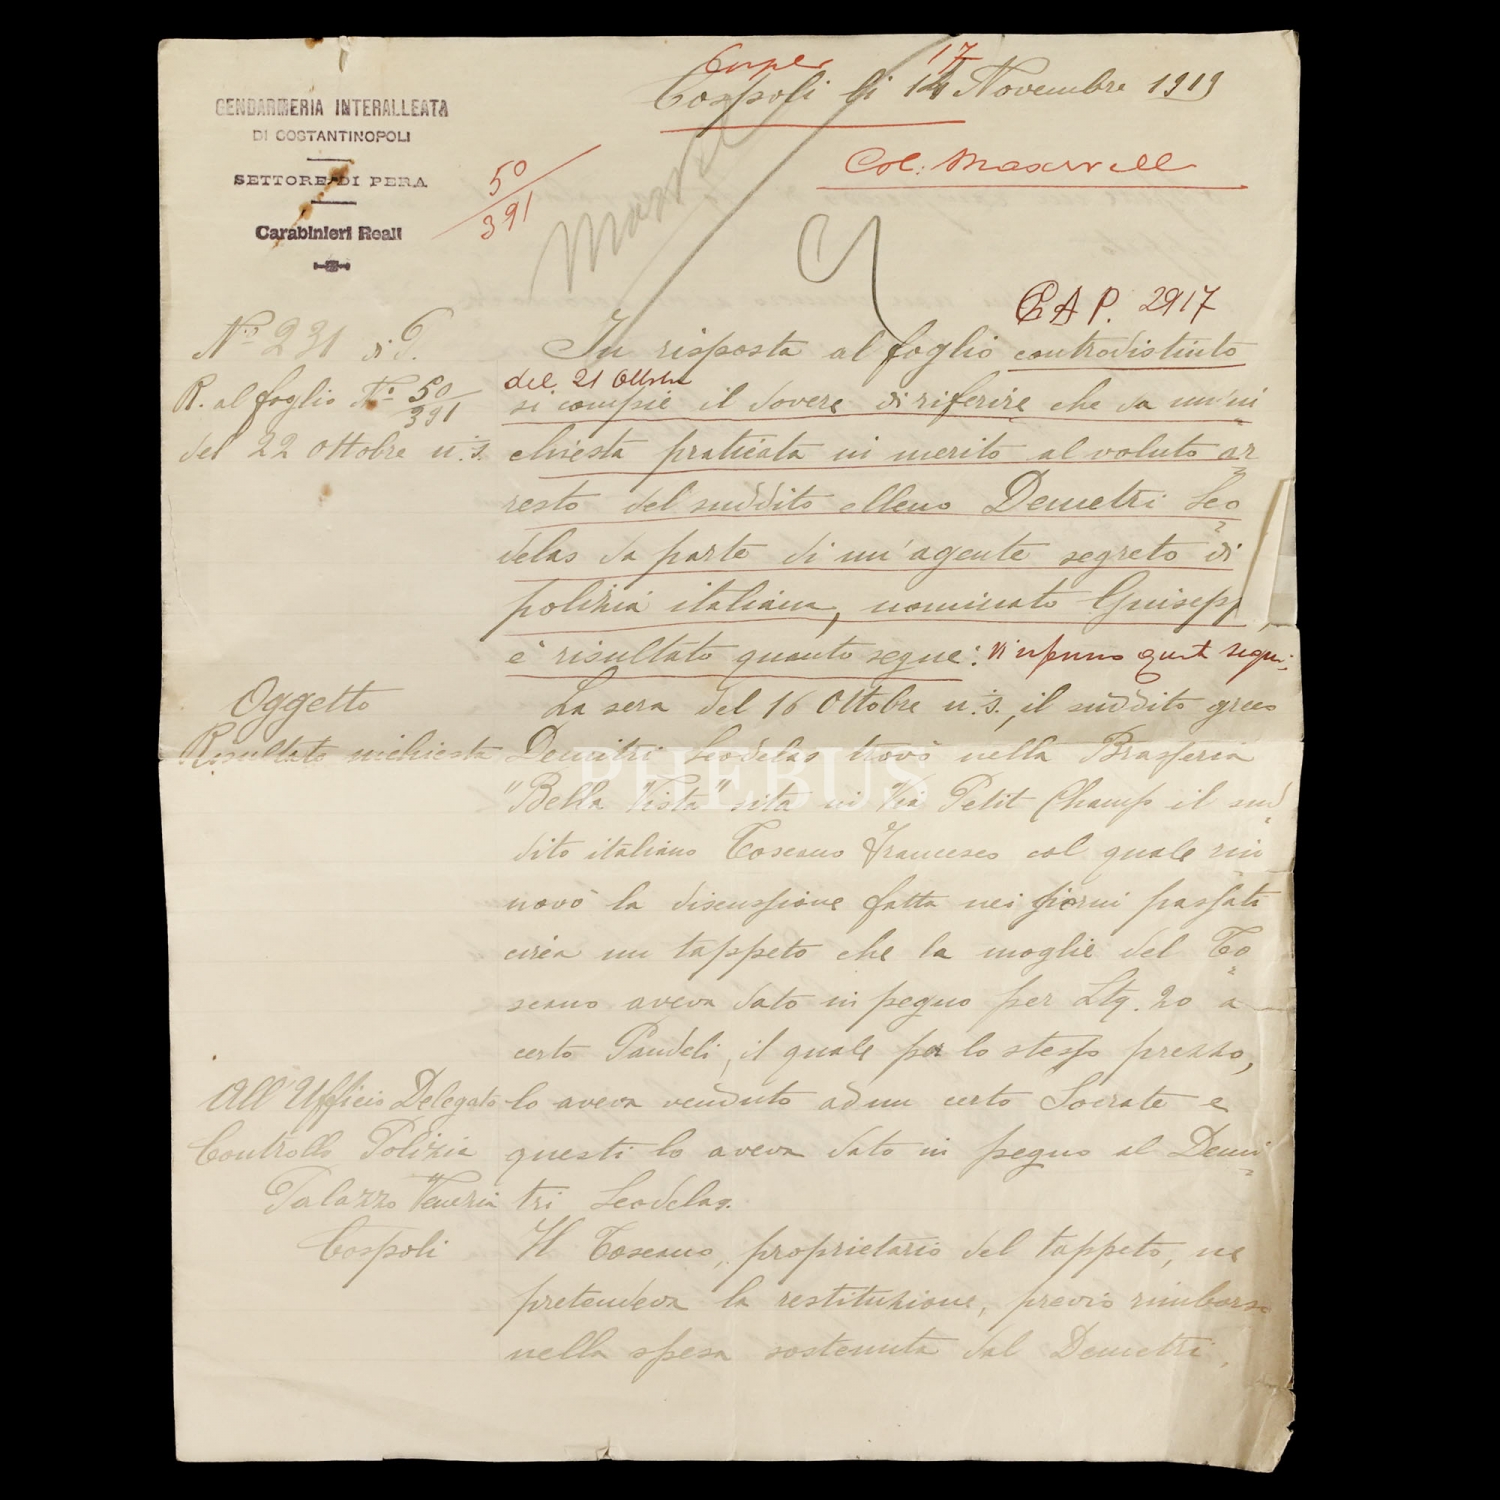 GENDARMERIA INTERALLEATA
DI COSTANTINOPOLI
SETTORE DI PERA
Carabinieri Reali
17
Cospoli li 14 Novembre 1919
Col: Maxwell
50
391
Maxwell
C A P. 2917
Nº 231 di 6.
R. al foglio Nº 50/391
del 22 Ottobre u.s.
In risposta al foglio controdistinto
del 21 Ottobre
si compie il dovere di riferire che da un'in
chiesta praticata in merito al voluto ar
resto del suddito elleno Demetri Leo
delas da parte di un'agente segreto di
polizia italiana, nominato Guisepp
è risultato quanto segue:
Oggetto
Risultato inchiesta
La sera del 16 Ottobre u.s., il suddito greco
Demitri Leodelas trovò nella Brasseria
PHEBUS
"Bella Vista" sita in Via Petit Champ il sud
dito italiano Toscano Francesco col quale rin
novò la discussione fatta nei giorni passati
circa un tappeto che la moglie del To
scano aveva dato in pegno per Ltq. 20 a
certo Pandeli, il quale per lo stesso prezzo,
lo aveva venduto ad un certo Socrate e
questi lo aveva dato in pegno al Demi
tri Leodelas.
All'Ufficio Delegato
Controllo Polizia
Palazzo Venezia
Cospoli
Il Toscano, proprietario del tappeto, ne
pretendeva la restituzione, previo rimborso
nella spesa sostenuta dal Demetri,